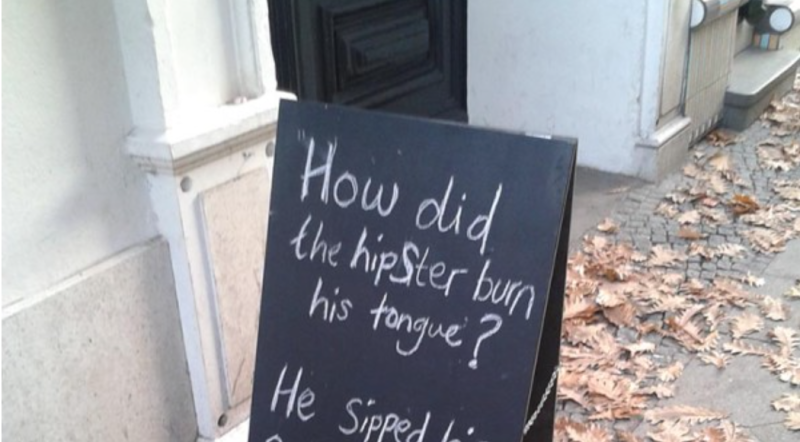 "How did
the hipster burn
his tongue?
He sipped